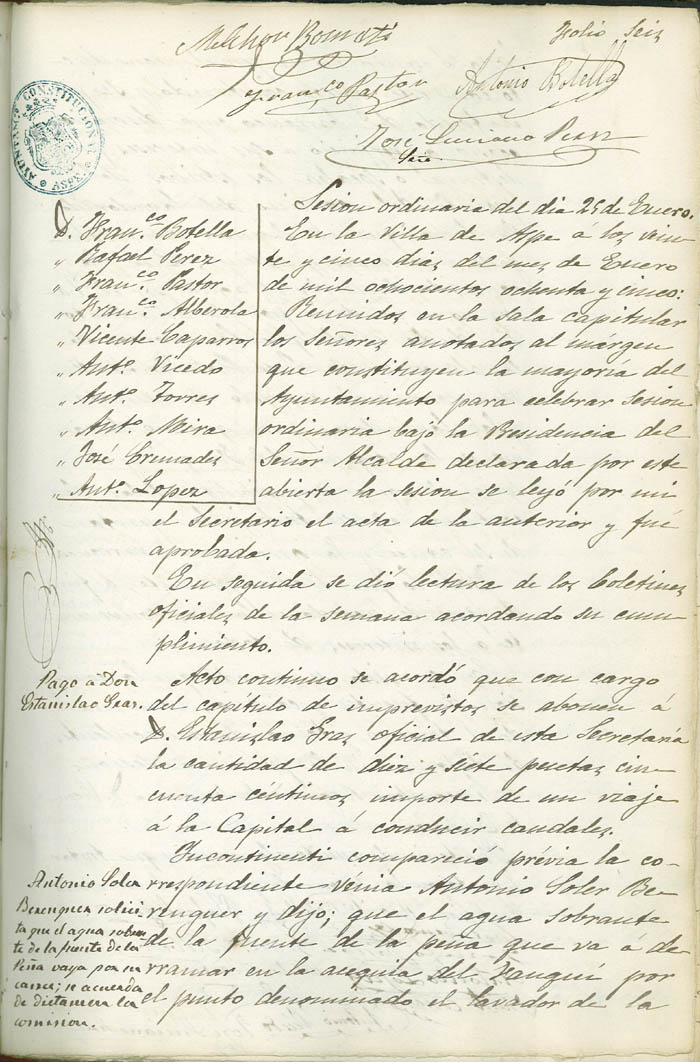 Folio Seis
Melchor Bonmatí
Fran.co Pastor
Antonio Botella
José Luciano
Srio.
AYUNTAM.TO CONSTITUCIONAL
ASPE
D. Fran.co Botella
„ Rafael Perez
„ Fran.co Pastor
„ Fran.co Alberola
„ Vicente Caparros
„ Ant.o Vicedo
„ Ant.o Torres
„ Ant.o Mira
„ José Cremades
„ Ant.o Lopez
Sesion ordinaria del dia 25 de Enero.
En la Villa de Aspe á los vein-
te y cinco dias del mes de Enero
de mil ochocientos ochenta y cinco:
Reunidos en la Sala capitular
los Señores anotados al margen
que constituyen la mayoría del
Ayuntamiento para celebrar sesion
ordinaria bajo la Presidencia del
Señor Alcalde declarada por este
abierta la sesion se leyó por mi
el Secretario el acta de la anterior y fué
aprobada.
En seguida se dió lectura de los boletines
oficiales de la semana acordando su cum-
plimiento.
Pago á Don
Estanislao Gras.
Acto continuo se acordó que con cargo
del capítulo de imprevistos se abonen á
D. Estanislao Gras oficial de esta Secretaría
la cantidad de diez y siete pesetas cin-
cuenta céntimos importe de un viaje
á la Capital á conducir caudales.
Antonio Soler
Berenguer solici
ta que el agua sobran
te de la fuente de la
Peña vaya por su
cauce; se acuerda
de dictamen la
comision.
Incontinenti compareció prévia la co-
rrespondiente vénia Antonio Soler Be-
renguer y dijo; que el agua sobrante
de la fuente de la peña que va á de-
rramar en la acequia del Fauquí por
el punto denominado el lavador de la